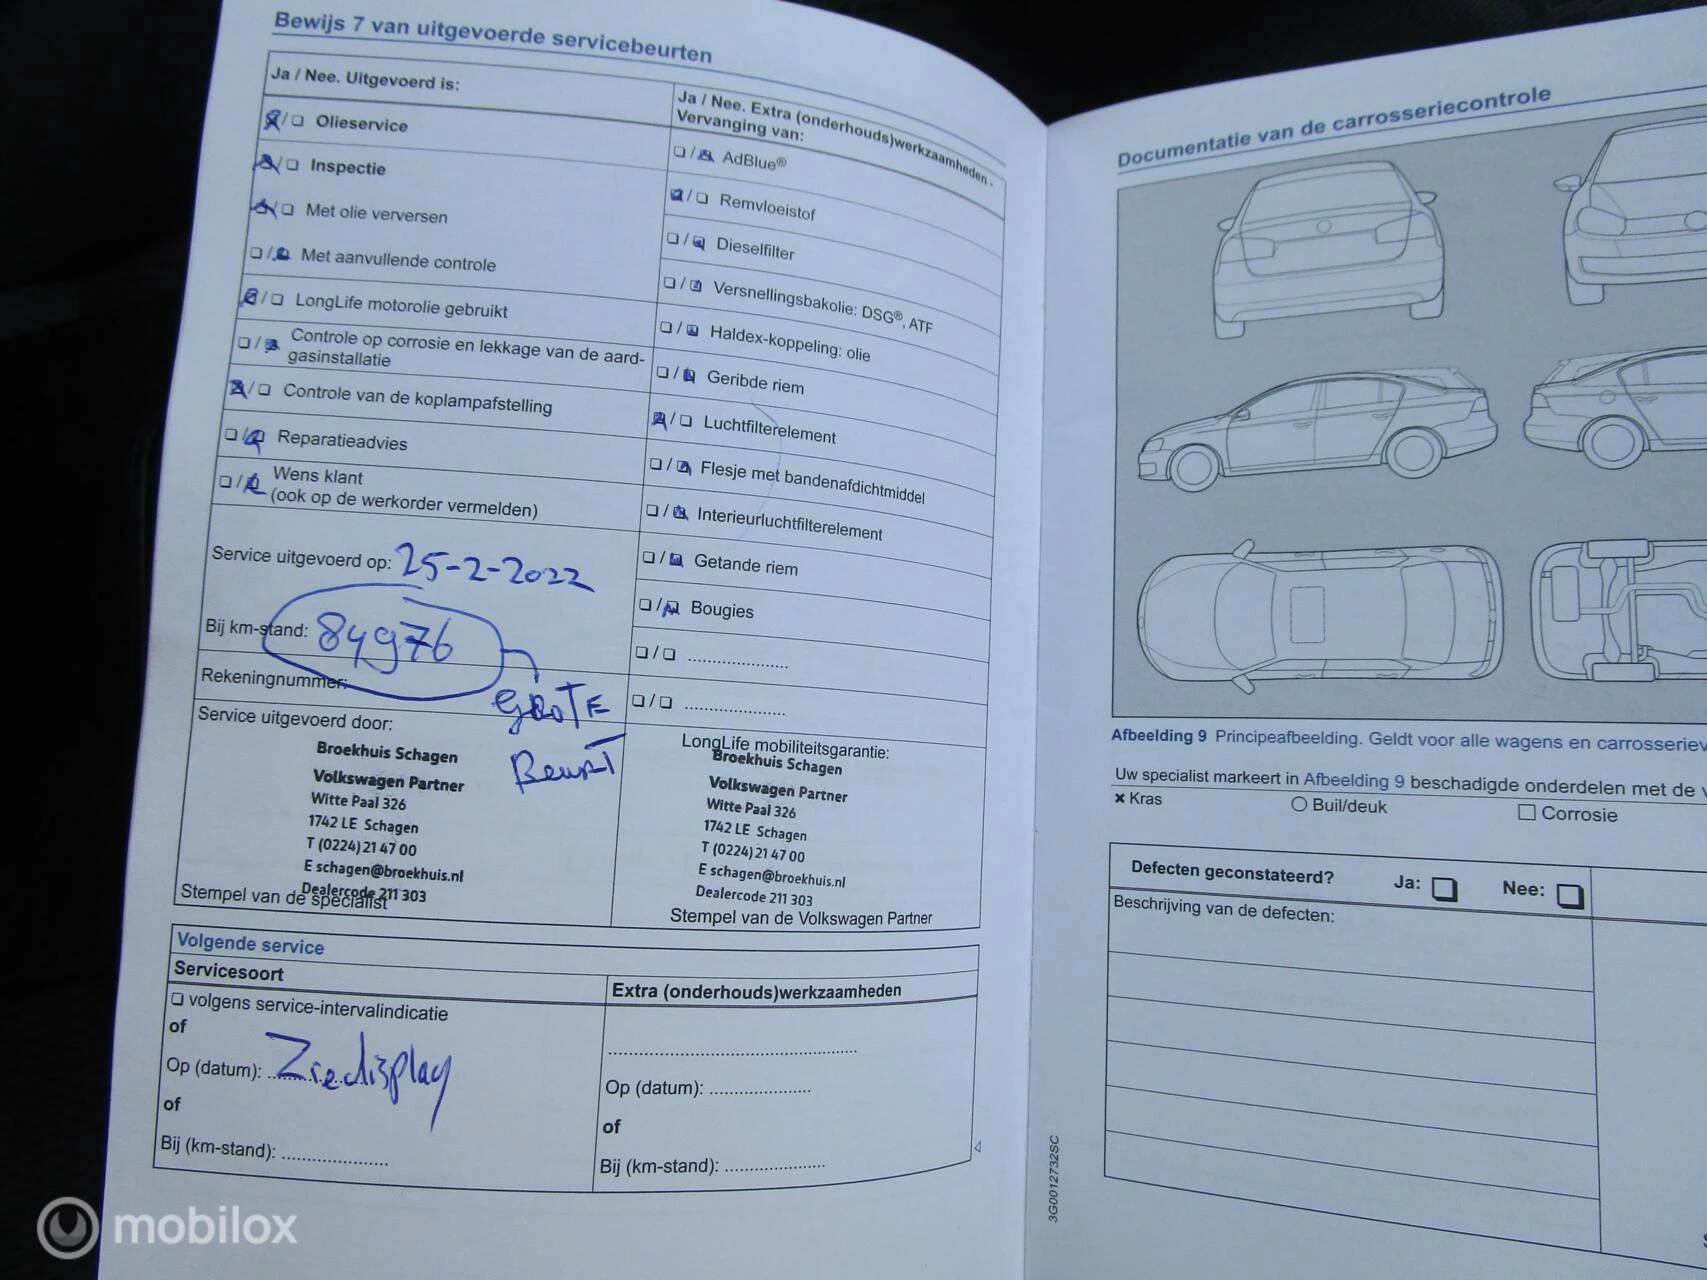 Bewijs 7 van uitgevoerde servicebeurten
Ja / Nee. Uitgevoerd is:
/ Olieservice
/ Inspectie
/ Met olie verversen
/ Met aanvullende controle
/ LongLife motorolie gebruikt
/ Controle op corrosie en lekkage van de aard-
gasinstallatie
/ Controle van de koplampafstelling
/ Reparatieadvies
/ Wens klant
(ook op de werkorder vermelden)
Service uitgevoerd op: 25-2-2022
Bij km-stand: 84976
Rekeningnummer:
GROTE
Beurt
Service uitgevoerd door:
Broekhuis Schagen
Volkswagen Partner
Witte Paal 326
1742 LE Schagen
T (0224) 21 47 00
E schagen@broekhuis.nl
Dealercode 211 303
Stempel van de specialist
Ja / Nee. Extra (onderhouds)werkzaamheden -
Vervanging van:
/ AdBlue®
/ Remvloeistof
/ Dieselfilter
/ Versnellingsbakolie: DSG®, ATF
/ Haldex-koppeling: olie
/ Geribde riem
/ Luchtfilterelement
/ Flesje met bandenafdichtmiddel
/ Interieurluchtfilterelement
/ Getande riem
/ Bougies
/ ......................
/ ......................
LongLife mobiliteitsgarantie:
Broekhuis Schagen
Volkswagen Partner
Witte Paal 326
1742 LE Schagen
T (0224) 21 47 00
E schagen@broekhuis.nl
Dealercode 211 303
Stempel van de Volkswagen Partner
Volgende service
Servicesoort
volgens service-intervalindicatie
of
Op (datum): Zie display
of
Bij (km-stand): ......................
Extra (onderhouds)werkzaamheden
......................................................
Op (datum): ......................
of
Bij (km-stand): ......................
Documentatie van de carrosseriecontrole
Afbeelding 9 Principeafbeelding. Geldt voor alle wagens en
Uw specialist markeert in Afbeelding 9 beschadigde onderdelen met de
Kras
Buil/deuk
Corrosie
Defecten geconstateerd? Ja: Nee:
Beschrijving van de defecten:
3G0012732SC
mobilox